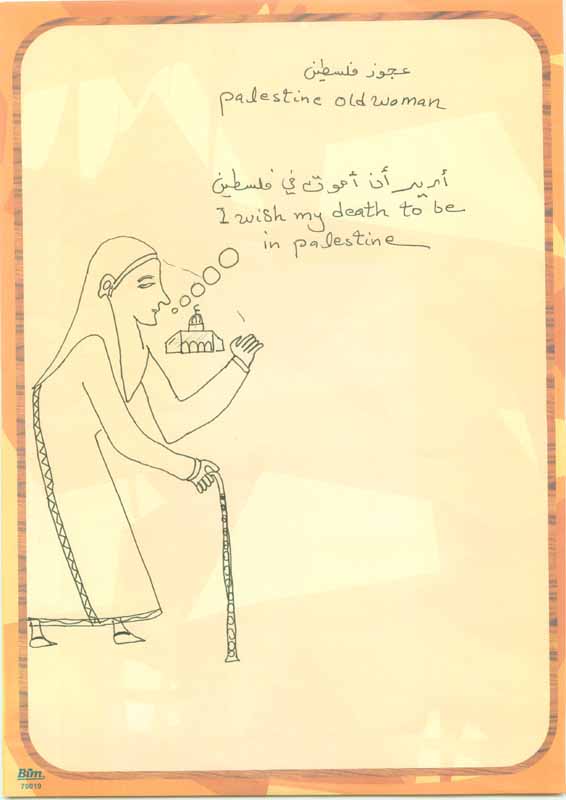 عجوز فلسطين
palestine old woman
أريد أن أموت في فلسطين
I wish my death to be
in palestine
Bum
70019